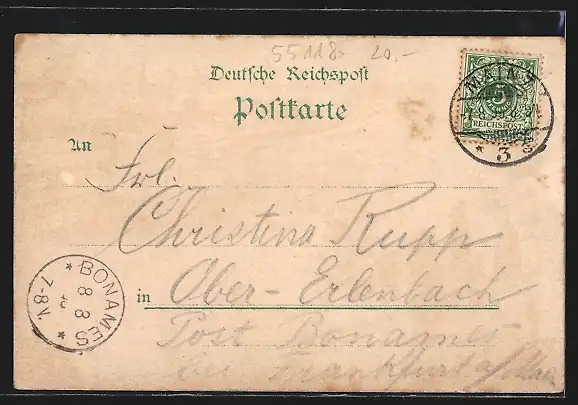 55118 20.-
Deutsche Reichspost
Postkarte
An
Frl.
Christina Rupp
in Ober-Erlenbach
Post Bonames
bei Frankfurt a/Main
MAINZ
5
REICHSPOST
* 3
* BONAMES *
8 8
7-8V.